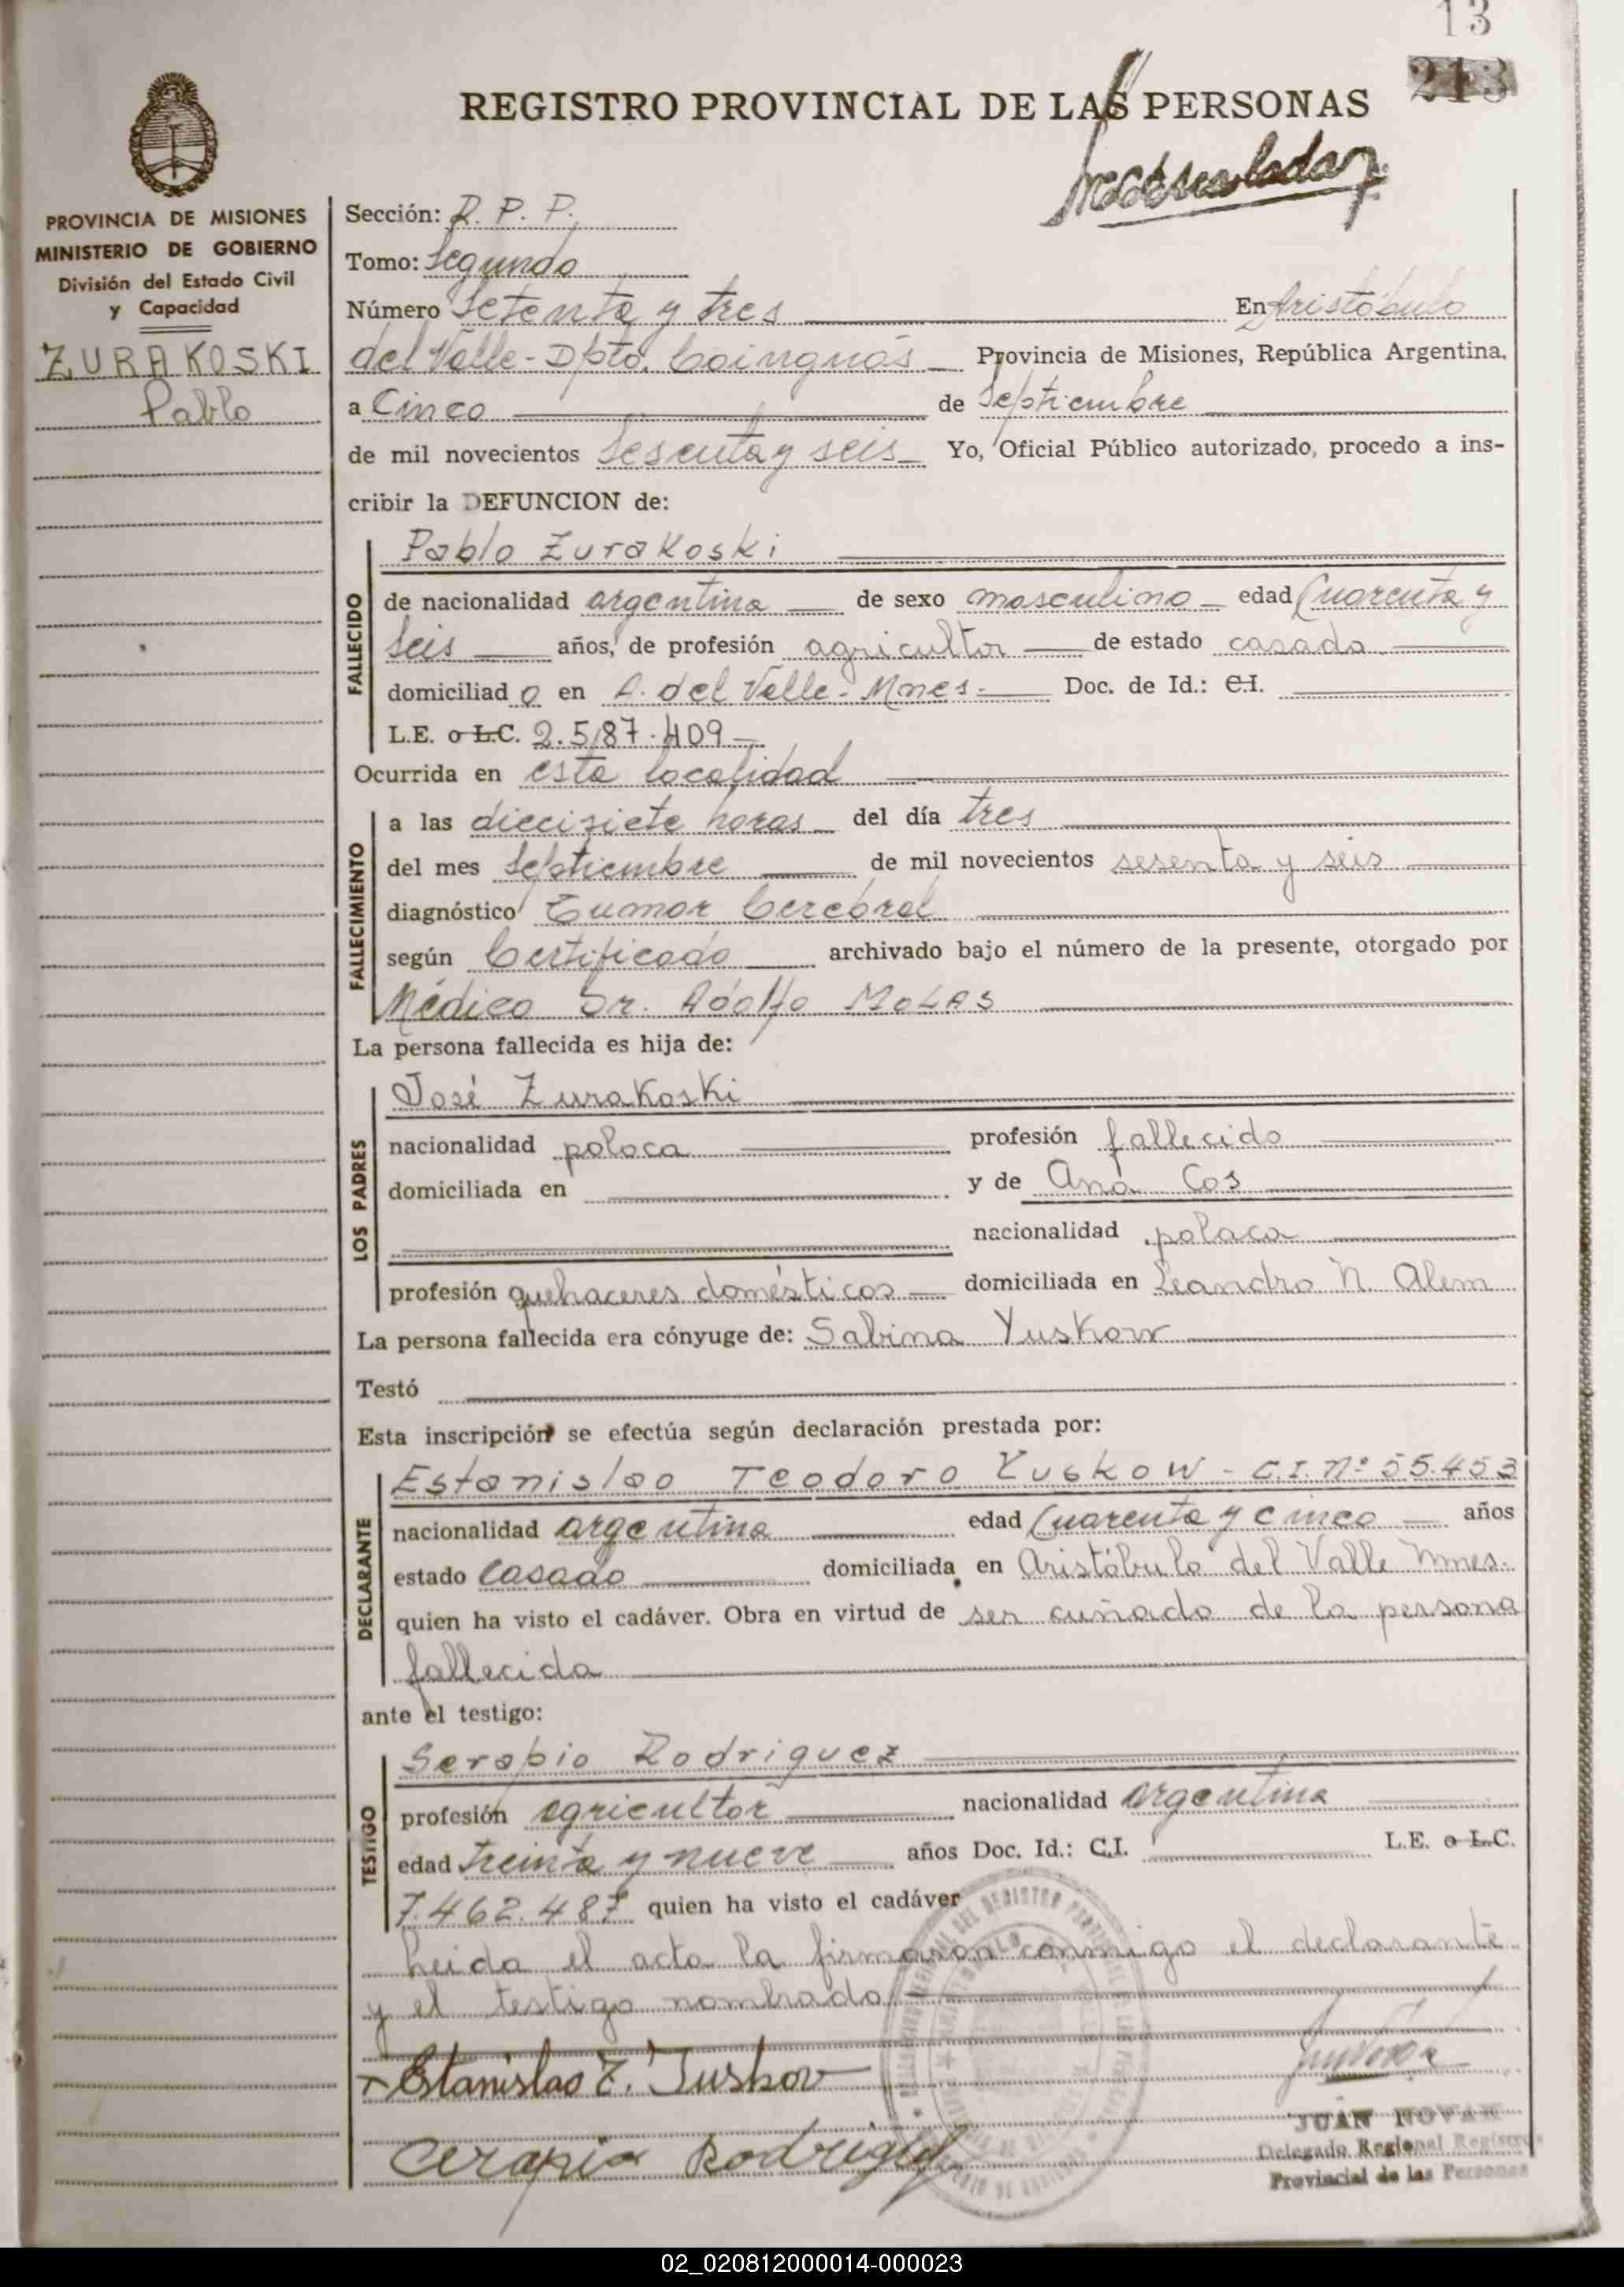 13
213
REGISTRO PROVINCIAL DE LAS PERSONAS
PROVINCIA DE MISIONES
MINISTERIO DE GOBIERNO
División del Estado Civil
y Capacidad
ZURAKOSKI
Pablo
Sección: R. P. P.
Tomo: Segundo
Número Setenta y tres En Aristóbulo
del Valle - Dpto. Cainguás Provincia de Misiones, República Argentina,
a Cinco de Septiembre
de mil novecientos Sesenta y seis Yo, Oficial Público autorizado, procedo a ins-
cribir la DEFUNCION de:
FALLECIDO
Pablo Zurakoski
de nacionalidad argentina de sexo masculino edad Cuarenta y
Seis años, de profesión agricultor de estado casado
domiciliado en A. del Valle - Mnes. Doc. de Id.: C.I.
L.E. o L.C. 2.587.409
Ocurrida en esta localidad
FALLECIMIENTO
a las diecisiete horas del día tres
del mes Septiembre de mil novecientos sesenta y seis
diagnóstico Tumor Cerebral
según Certificado archivado bajo el número de la presente, otorgado por
Médico Dr. Adolfo MOLAS
La persona fallecida es hija de:
LOS PADRES
José Zurakoski
nacionalidad polaca profesión fallecido
domiciliada en y de Ana Cos
nacionalidad polaca
profesión quehaceres domésticos domiciliada en Leandro N. Alem
La persona fallecida era cónyuge de: Sabina Yuskow
Testó
Esta inscripción se efectúa según declaración prestada por:
DECLARANTE
Estanislao Teodoro Yuskow - C.I. Nº 55.453
nacionalidad argentina edad Cuarenta y cinco años
estado Casado domiciliada en Aristóbulo del Valle Mnes.
quien ha visto el cadáver. Obra en virtud de ser cuñado de la persona
fallecida
ante el testigo:
TESTIGO
Serapio Rodriguez
profesión agricultor nacionalidad argentina
edad treinta y nueve años Doc. Id.: C.I. L.E. o L.C.
7.462.487 quien ha visto el cadáver
Leida el acta la firmaron conmigo el declarante
y el testigo nombrado
Estanislao T. Juskov
Cerapio Rodriguez
JUAN NOVAK
Delegado Regional Registro
Provincial de las Personas
02_020812000014-000023